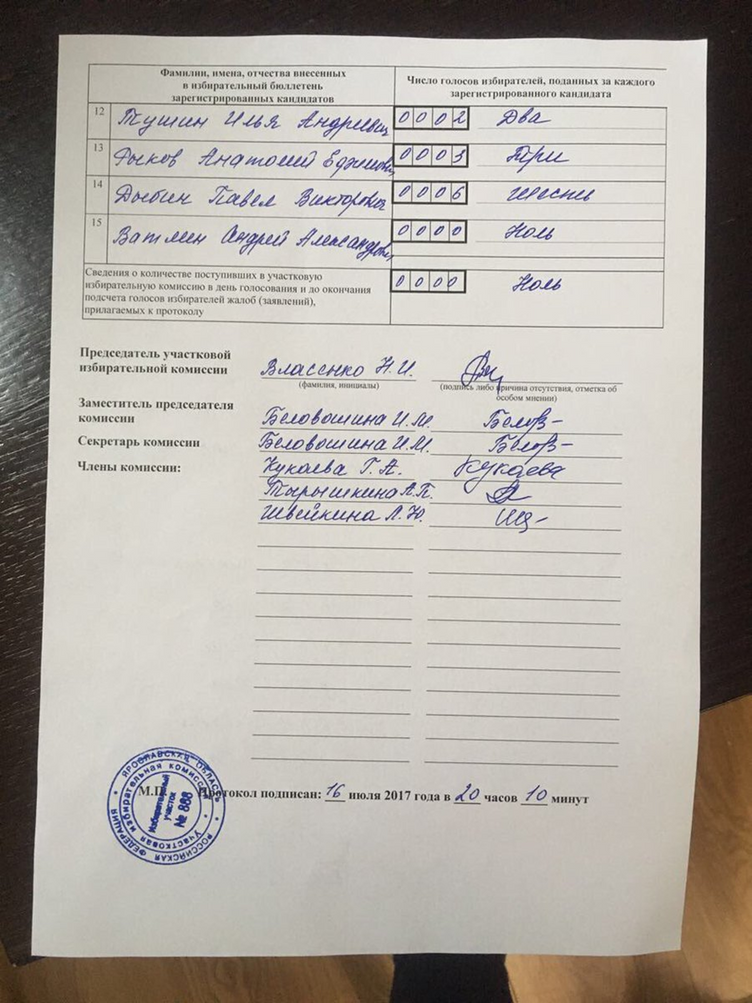 Фамилии, имена, отчества внесенных
в избирательный бюллетень
зарегистрированных кандидатов
Число голосов избирателей, поданных за каждого
зарегистрированного кандидата
12 Тушин Илья Андреевич 0 0 0 2 Два
13 Рыков Анатолий 0 0 0 3 Три
14 Дыбин Павел Викторович 0 0 0 6 Шесть
15 Ватлин Андрей Александрович 0 0 0 0 Ноль
Сведения о количестве поступивших в участковую
избирательную комиссию в день голосования и до окончания
подсчета голосов избирателей жалоб (заявлений),
прилагаемых к протоколу
0 0 0 0 Ноль
Председатель участковой
избирательной комиссии Власенко Н.И.
(фамилия, инициалы) (подпись либо причина отсутствия, отметка об
особом мнении)
Заместитель председателя
комиссии Беловошина И.М. Белов-
Секретарь комиссии Беловошина И.М. Белов-
Члены комиссии: Кукаева Г.А. Кукаева
Тырышкина А.П.
Швейкина Л.Ю.
М.П. Протокол подписан: 16 июля 2017 года в 20 часов 10 минут
РОССИЙСКАЯ ФЕДЕРАЦИЯ * ЯРОСЛАВСКАЯ ОБЛАСТЬ *
Участковая избирательная комиссия
Избирательный
участок
№ 888